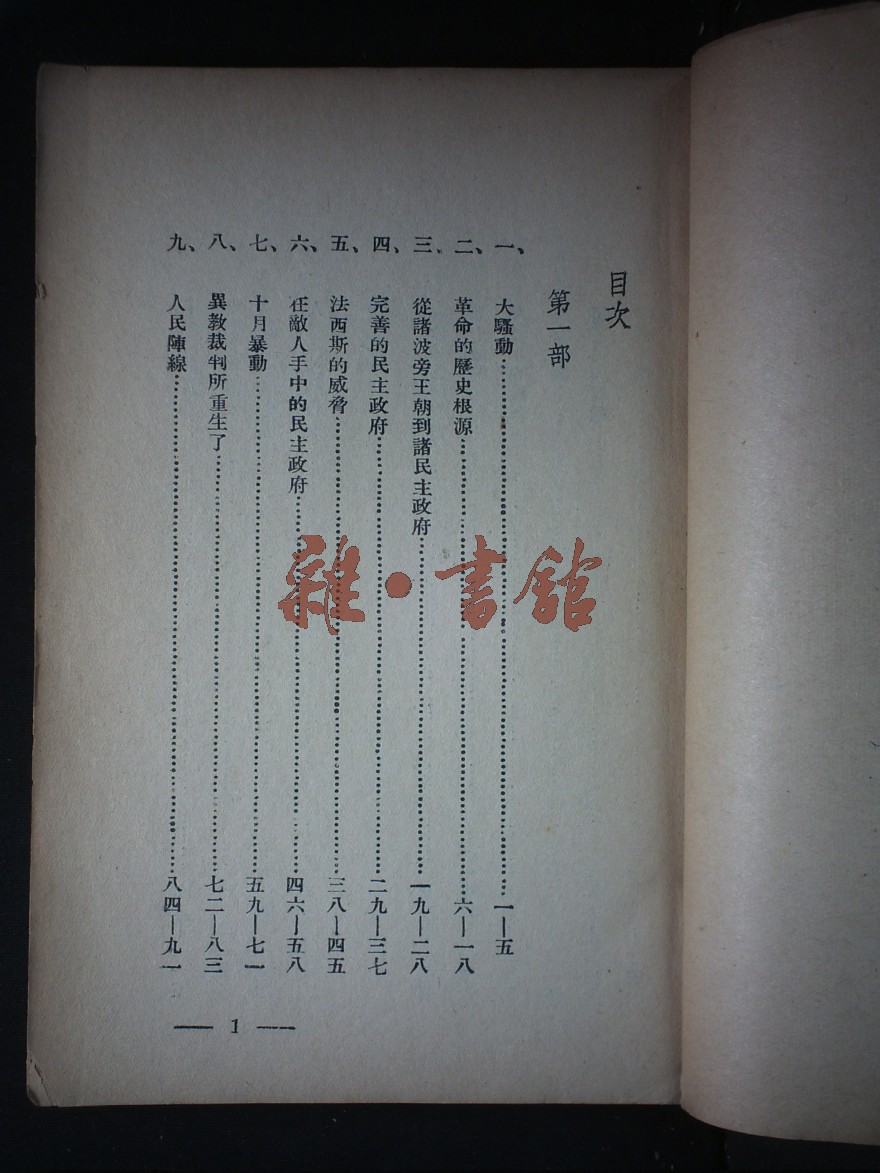 目次
第一部
一、大騷動……一—五
二、革命的歷史根源……六—一八
三、從諸波旁王朝到諸民主政府……一九—二八
四、完善的民主政府……二九—三七
五、法西斯的威脅……三八—四五
六、在敵人手中的民主政府……四六—五八
七、十月暴動……五九—七一
八、異教裁判所重生了……七二—八三
九、人民陣線……八四—九一
— 1 —
雜·書館